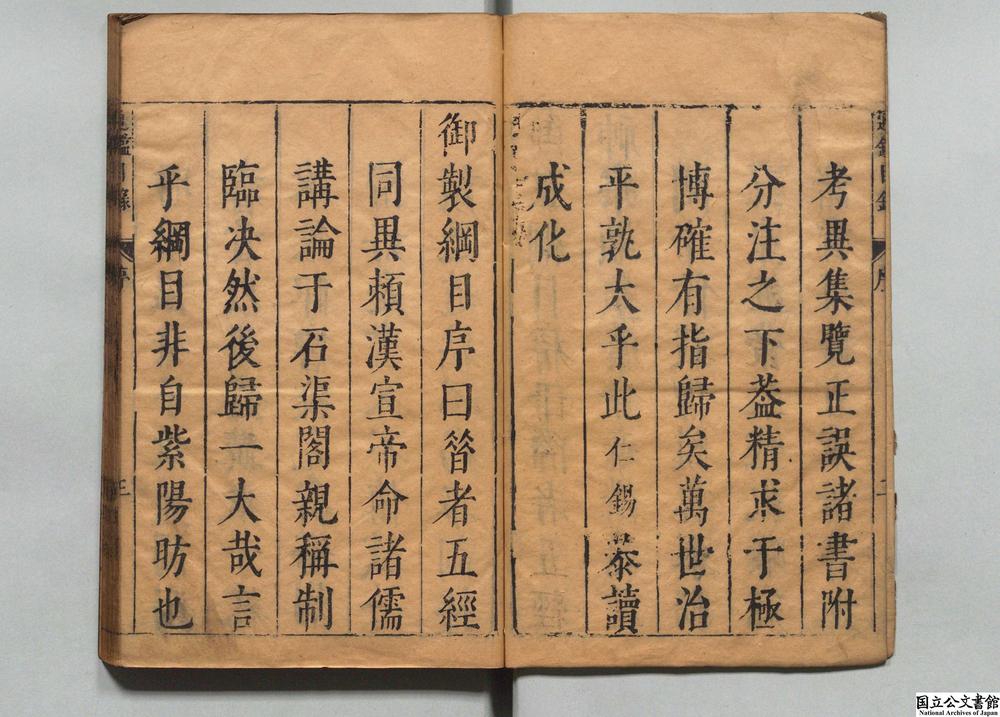 考異集覽正誤諸書附
分注之下葢精求于極
博確有指歸矣萬世治
平孰大乎此仁錫忝讀
成化
御製綱目序曰昝者五經
同異頼漢宣帝命諸儒
講論于石渠閣親稱制
臨决然後歸一大哉言
乎綱目非自紫陽昉也
通鑑目錄
序
二
通鑑目錄
序
三
国立公文書館
National Archives of Japan